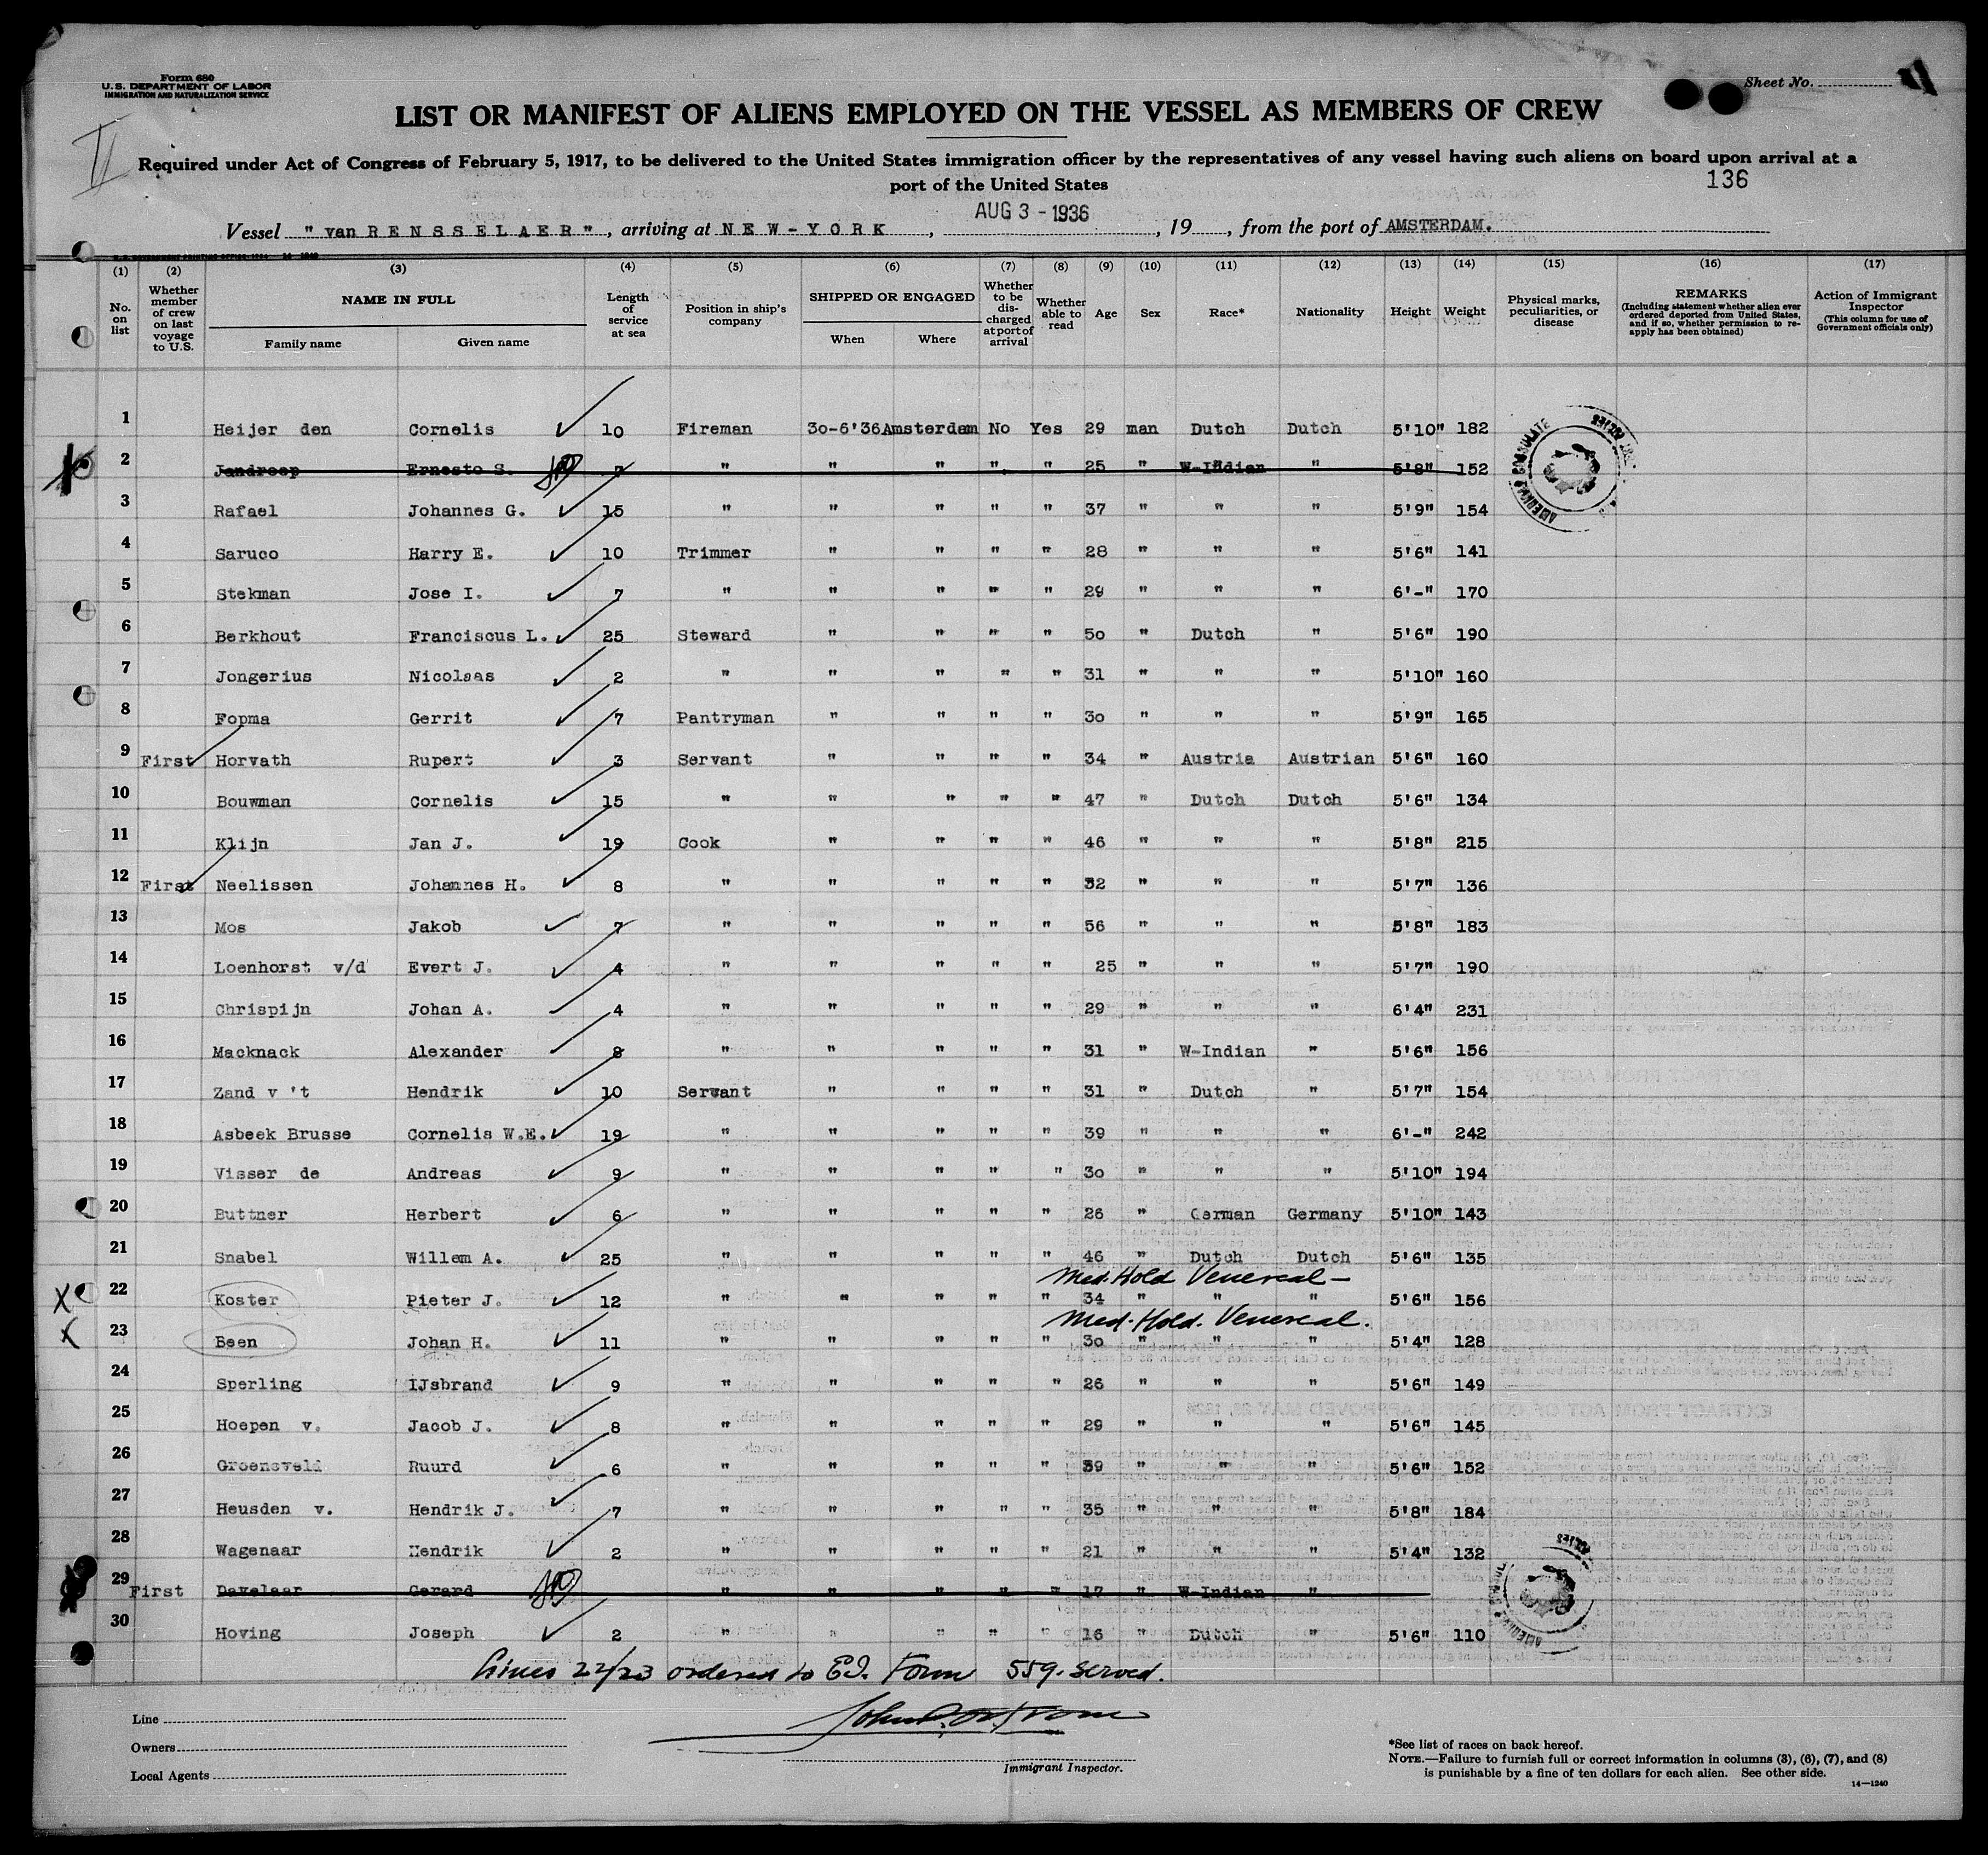 Form 680
U.S. DEPARTMENT OF LABOR
IMMIGRATION AND NATURALIZATION SERVICE
Sheet No.
LIST OR MANIFEST OF ALIENS EMPLOYED ON THE VESSEL AS MEMBERS OF CREW
Required under Act of Congress of February 5, 1917, to be delivered to the United States immigration officer by the representatives of any vessel having such aliens on board upon arrival at a
port of the United States
136
AUG 3 - 1936
Vessel " van RENSSELAER " , arriving at NEW-YORK , , 19 , from the port of AMSTERDAM.
(1) (2) (3) (4) (5) (6) (7) (8) (9) (10) (11) (12) (13) (14) (15) (16) (17)
No. on list
Whether member of crew on last voyage to U.S.
NAME IN FULL
Family name Given name
Length of service at sea
Position in ship's company
SHIPPED OR ENGAGED
When Where
Whether to be discharged at port of arrival
Whether able to read
Age
Sex
Race*
Nationality
Height
Weight
Physical marks, peculiarities, or disease
REMARKS
(Including statement whether alien ever ordered deported from United States, and if so, whether permission to re-apply has been obtained)
Action of Immigrant Inspector
(This column for use of Government officials only)
1 Heijer den Cornelis 10 Fireman 30-6'36 Amsterdam No Yes 29 man Dutch Dutch 5'10" 182
2 Jandroep Ernesto S. 7 " " " " " 25 " W-Indian " 5'8" 152
3 Rafael Johannes G. 15 " " " " " 37 " " " 5'9" 154
4 Saruco Harry E. 10 Trimmer " " " " 28 " " " 5'6" 141
5 Stekman Jose I. 7 " " " " " 29 " " " 6'-" 170
6 Berkhout Franciscus L. 25 Steward " " " " 50 " Dutch " 5'6" 190
7 Jongerius Nicolaas 2 " " " " " 31 " " " 5'10" 160
8 Fopma Gerrit 7 Pantryman " " " " 30 " " " 5'9" 165
9 First Horvath Rupert 3 Servant " " " " 34 " Austria Austrian 5'6" 160
10 Bouwman Cornelis 15 " " " " " 47 " Dutch Dutch 5'6" 134
11 Klijn Jan J. 19 Cook " " " " 46 " " " 5'8" 215
12 First Neelissen Johannes H. 8 " " " " " 32 " " " 5'7" 136
13 Mos Jakob 7 " " " " " 56 " " " 5'8" 183
14 Loenhorst v/d Evert J. 4 " " " " " 25 " " " 5'7" 190
15 Chrispijn Johan A. 4 " " " " " 29 " " " 6'4" 231
16 Macknack Alexander 8 " " " " " 31 " W-Indian " 5'6" 156
17 Zand v 't Hendrik 10 Servant " " " " 31 " Dutch " 5'7" 154
18 Asbeek Brusse Cornelis W.E. 19 " " " " " 39 " " " 6'-" 242
19 Visser de Andreas 9 " " " " " 30 " " " 5'10" 194
20 Buttner Herbert 6 " " " " " 26 " German Germany 5'10" 143
21 Snabel Willem A. 25 " " " " " 46 " Dutch Dutch 5'6" 135
Med. Hold Venereal —
22 Koster Pieter J. 12 " " " " " 34 " " " 5'6" 156
Med. Hold. Venereal.
23 Been Johan H. 11 " " " " " 30 " " " 5'4" 128
24 Sperling IJsbrand 9 " " " " " 26 " " " 5'6" 149
25 Hoepen v. Jacob J. 8 " " " " " 29 " " " 5'6" 145
26 Groensveld Ruurd 6 " " " " " 39 " " " 5'6" 152
27 Heusden v. Hendrik J. 7 " " " " " 35 " " " 5'8" 184
28 Wagenaar Hendrik 2 " " " " " 21 " " " 5'4" 132
29 First Davelaar Gerard " " " " " 17 " W-Indian "
30 Hoving Joseph 2 " " " " " 16 " Dutch " 5'6" 110
Lines 22/23 ordered to E.I. Form 559. served.
Line
Owners
Local Agents
Immigrant Inspector.
*See list of races on back hereof.
NOTE.—Failure to furnish full or correct information in columns (3), (6), (7), and (8)
is punishable by a fine of ten dollars for each alien. See other side.
14—1240